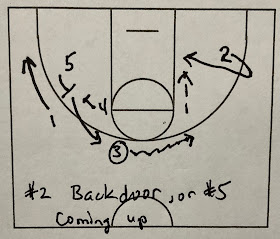 5
2
4
1
3
#2 Backdoor, or #5
Coming up